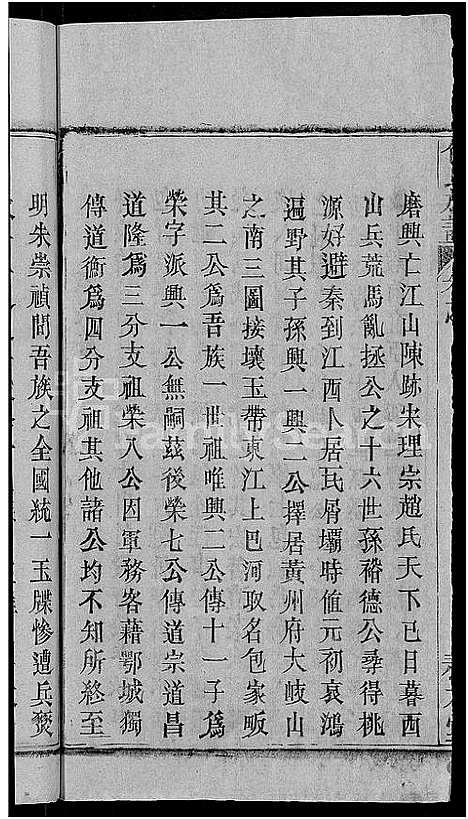 磨興亡江山陳跡宋理宗趙氏天下已日暮西
山兵荒馬亂拯公之十六世孫裕德公尋得桃
源好避秦到江西卜居瓦屑壩時值元初哀鴻
遍野其子孫興一興二公擇居黃州府大岐山
之南三圖接壤玉帶東江上巴河取名包家畈
其二公爲吾族一世祖唯興二公傳十一子爲
榮字派興一公無嗣茲後榮七公傳道宗道昌
道隆爲三分支祖榮八公因軍務客藉鄂城獨
傳道衡爲四分支祖其他諸公均不知所終至
明朱崇禎間吾族之全國統一玉牒慘遭兵燹